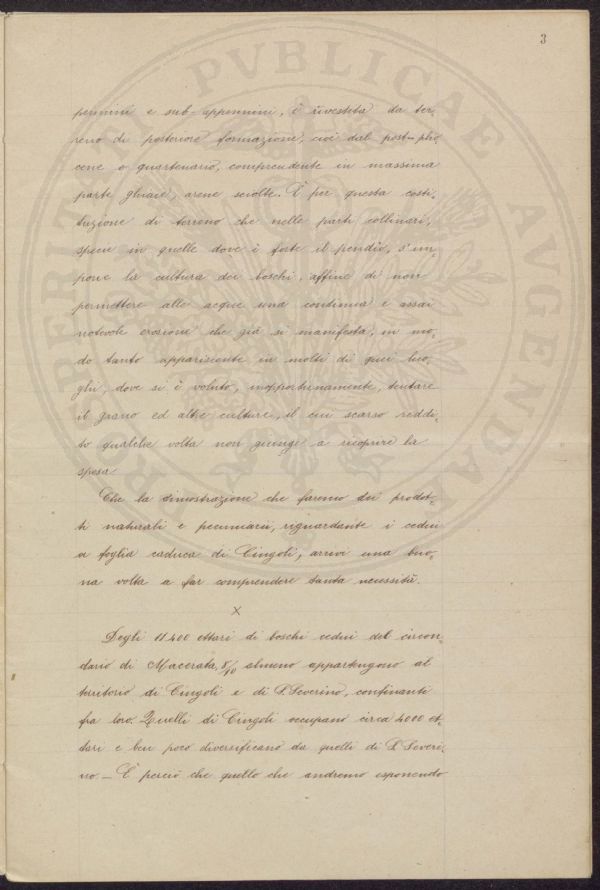 3
pennini e sub-appennini, è rivestita da ter-
reno di posteriore formazione, cioè dal post-plio
cene o quartenario, comprendente in massima
parte ghiaie, arene sciolte. È per questa costi-
tuzione di terreno che nelle parti collinari,
specie in quelle dove è forte il pendìo, s'im-
pone la cultura dei boschi, affine di non
permettere alle acque una continua e assai
notevole erosione che già si manifesta, in mo-
do tanto appariscente in molti di quei luo-
ghi, dove si è voluto, inopportunamente, tentare
il grano ed altre culture, il cui scarso reddi-
to qualche volta non giunge a ricoprire la
spesa
Che la dimostrazione che faremo dei prodot-
ti naturali e pecuniarii, riguardante i cedui
a foglia caduca di Cingoli, arrivi una buo-
na volta a far comprendere tanta necessità.
x
Degli 11400 ettari di boschi cedui del circon-
dario di Macerata, 8/10 almeno appartengono al
territorio di Cingoli e di S. Severino, confinanti
fra loro. Quelli di Cingoli occupano circa 4000 et-
tari e ben poco diversificano da quelli di S. Severi-
no - È perciò che quello che andremo esponendo